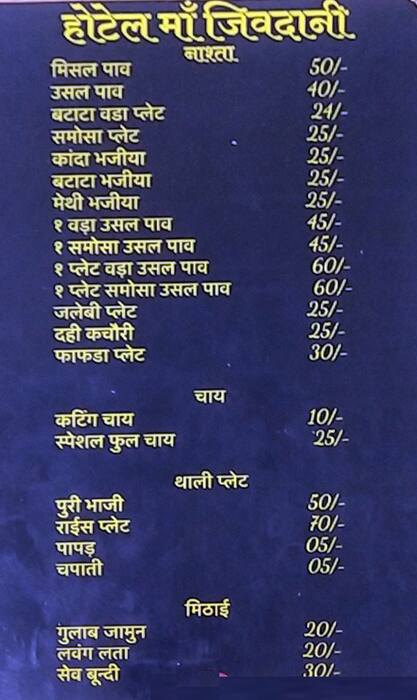 होटेल माँ जिवदानी
नाश्ता
मिसल पाव 50/-
उसल पाव 40/-
बटाटा वडा प्लेट 24/-
समोसा प्लेट 25/-
कांदा भजीया 25/-
बटाटा भजीया 25/-
मेथी भजीया 25/-
१ वड़ा उसल पाव 45/-
१ समोसा उसल पाव 45/-
१ प्लेट वड़ा उसल पाव 60/-
१ प्लेट समोसा उसल पाव 60/-
जलेबी प्लेट 25/-
दही कचौरी 25/-
फाफडा प्लेट 30/-
चाय
कटिंग चाय 10/-
स्पेशल फुल चाय 25/-
थाली प्लेट
पुरी भाजी 50/-
राईस प्लेट 70/-
पापड़ 05/-
चपाती 05/-
मिठाई
गुलाब जामुन 20/-
लवंग लता 20/-
सेव बून्दी 30/-